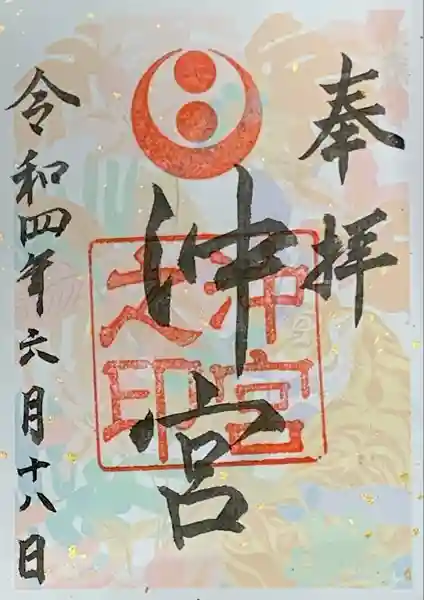 奉拝
沖宮
沖宮之印
令和四年六月十八日